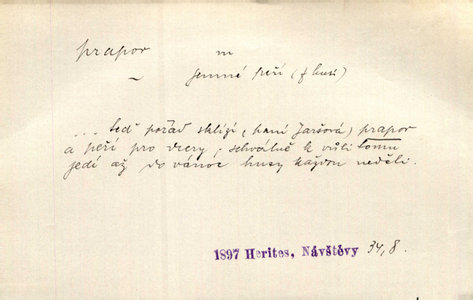 prapor m
~ jemné peří (z husí)
... teď pořád sklízí (paní Jaršová) prapor
a peří pro dcery; schválně k vůli tomu
jedí až do vánoc husy každou neděli.
1897 Herites, Návštěvy 34, 8.